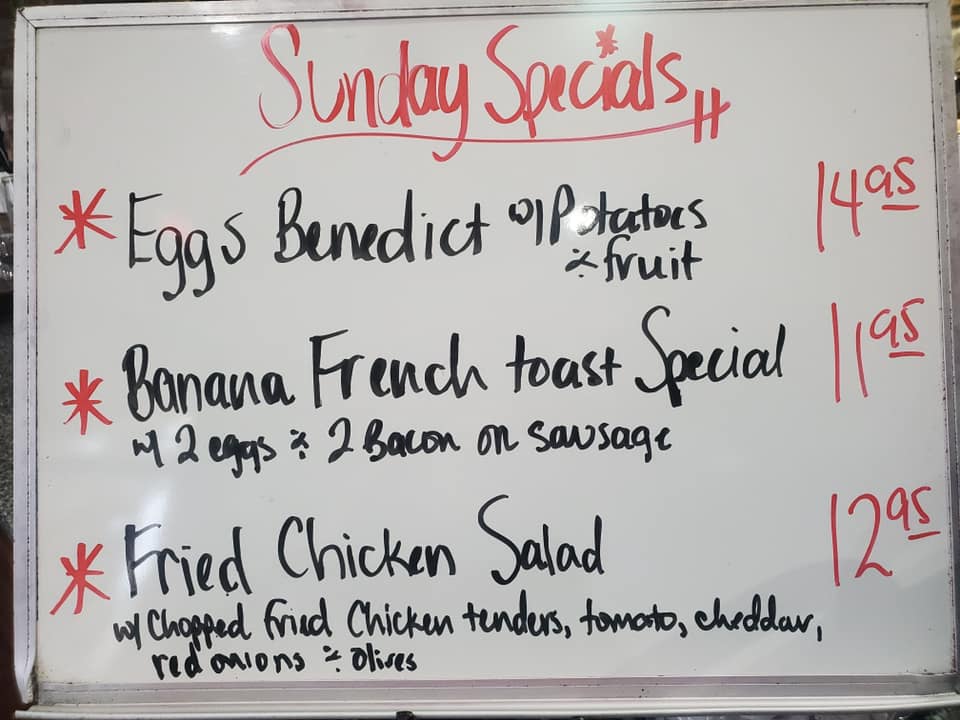 Sunday Specials
* Eggs Benedict w/ Potatoes 14 95
& fruit
* Banana French toast Special 11 95
w/ 2 eggs & 2 Bacon or sausage
* Fried Chicken Salad 12 95
w/ Chopped Fried Chicken tenders, tomato, cheddar,
red onions & olives